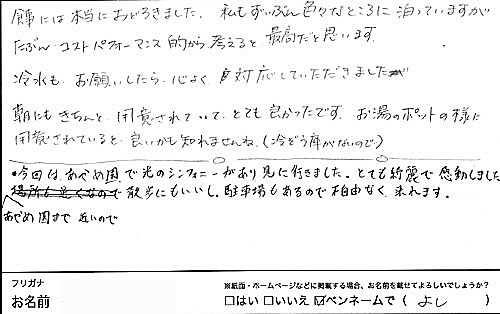 食事には本当におどろきました。私もずいぶん色々なところに泊っていますが
たぶんコストパフォーマンス的から考えると最高だと思います。
冷水も、お願いしたら、心よく対応していただきましたが
朝にもきちんと、用意されていて、とても良かったです。お湯のポットの様に
用意されていると、良いかも知れませんね、(冷ぞう庫がないので)
•今回は、あやめ園で光のシンフォニーがあり見に行きました。とても綺麗で感動しました
場所も近くなので散歩にもいいし、駐車場もあるので不自由なく来れます。
あやめ園まで近いので
フリガナ
お名前
※紙面・ホームページなどに掲載する場合、お名前を載せてよろしいでしょうか?
□はい □いいえ ☑ペンネームで ( よし )